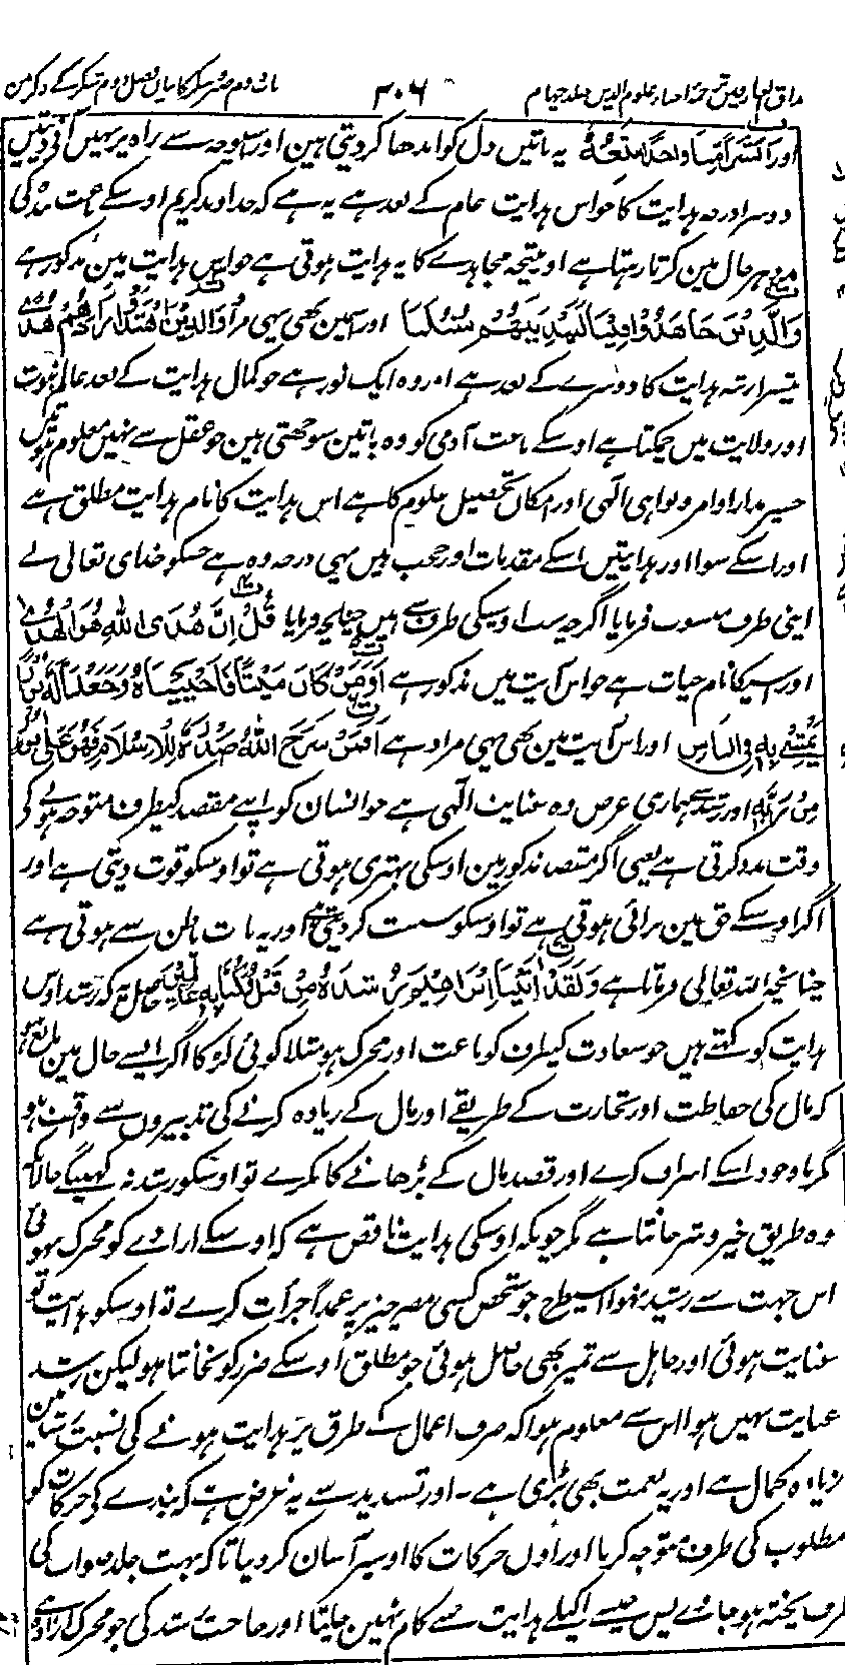 مذاق العارفین ترجمہ احیاء علوم الدین جلد چہارم ۳۰۶ باب دوم صبر و شکر کا بیان فصل دوم شکر کے ذکر مین
اور اَبَشَرًا مِّنَّا وَاحِدًا نَّتَّبِعُهٗ یہ باتیں دل کو اندھا کر دیتی ہین اور اسیوجہ سے راہ پر نہیں آنے دیتیں
دوسرا درجہ ہدایت کا جو اس ہدایت عام کے بعد ہے یہ ہے کہ خداوند کریم اوسکے جہت بندہ کی
مدد ہر حال مین کرتا رہتا ہے اور نتیجہ مجاہدے کا یہ ہدایت ہوتی ہے جو اس ہدایت مین مذکور ہے
وَالَّذِیْنَ جَاهَدُوْا فِیْنَا لَنَهْدِیَنَّهُمْ سُبُلَنَا اور اسمین بھی یہی مراد وَالَّذِیْنَ اهْتَدَوْا زَادَهُمْ هُدًی
تیسرا رتبہ ہدایت کا دوسرے کے بعد ہے اور وہ ایک نور ہے جو کمال ہدایت کے بعد عالم نبوت
اور ولایت میں چمکتا ہے اوسکے باعث آدمی کو وہ باتین سوجھتی ہین جو عقل سے نہیں معلوم ہوتیں
جسپر مدار اوامر و نواہی الٰہی اور امکان تحصیل علوم کا ہے اس ہدایت کا نام ہدایت مطلق ہے
اور اسکے سوا اور ہدایتیں اسکے مقدمات اور حجب ہیں یہی درجہ وہ ہے جسکو خدای تعالی نے
اپنی طرف منسوب فرمایا اگرچہ سب اوسیکی طرف سے ہیں چنانچہ فرمایا قُلْ اِنَّ هُدَی اللّٰهِ هُوَ الْهُدٰی
اور اسیکا نام حیات ہے جو اس آیت میں مذکور ہے اَوَمَنْ كَانَ مَیْتًا فَاَحْیَیْنَاهُ وَجَعَلْنَا لَهٗ نُوْرًا
یَّمْشِیْ بِهٖ فِی النَّاسِ اور اس آیت مین بھی یہی مراد ہے اَفَمَنْ شَرَحَ اللّٰهُ صَدْرَهٗ لِلْاِسْلَامِ فَهُوَ عَلٰی نُوْرٍ
مِّنْ رَّبِّهٖ اور رشد سے ہماری غرض وہ عنایت الٰہی ہے جو انسان کو اپنے مقصد کیطرف متوجہ ہونے کے
وقت مدد کرتی ہے یعنی اگر مقصد مذکور مین اوسکی بہتری ہوتی ہے تو اوسکو قوت دیتی ہے اور
اگر اوسکے حق مین برائی ہوتی ہے تو اوسکو سست کر دیتی ہے اور یہ بات باطن سے ہوتی ہے
چنانچہ اللہ تعالی فرماتا ہے وَلَقَدْ اٰتَیْنَا اِبْرَاهِیْمَ رُشْدَهٗ مِنْ قَبْلُ وَكُنَّا بِهٖ عَالِمِیْنَ حاصل یہ کہ رشد اوس
ہدایت کو کہتے ہیں جو سعادت کیطرف کو باعث اور محرک ہو مثلا کوئی لڑکا اگر ایسے حال مین بالغ ہو
کہ مال کی حفاظت اور تجارت کے طریقے اور مال کے زیادہ کرنے کی تدبیروں سے واقف ہو
مگر باوجود اسکے اسراف کرے اور قصد مال کے بڑھانے کا نکرے تو اوسکو رشید نہ کہینگے حالانکہ
وہ طریق خیر و شر جانتا ہے مگر چونکہ اوسکی ہدایت ناقص ہے کہ اوسکے ارادے کو محرک نہوئی
اس جہت سے رشید نہوا اسیطرح جو شخص کسی مضر چیز پر عمداً جرأت کرے تو اوسکو ہدایت تو
عنایت ہوئی اور جاہل سے تمیز بھی حاصل ہوئی جو مطلق اوسکے ضرر کو نجانتا ہو لیکن رشد
عنایت نہیں ہوا اس سے معلوم ہوا کہ صرف اعمال کے طرق پر ہدایت ہونے کی نسبت رشد مین
زیادہ کمال ہے اور یہ نعمت بھی بڑی ہے - اور تسدید سے یہ غرض ہے کہ بندے کی حرکات کو
مطلوب کی طرف متوجہ کرنا اور اون حرکات کا اوسپر آسان کر دینا تاکہ بہت جلد صواب کی
طرف پختہ ہو جاوے پس جیسے اکیلے ہدایت سے کام نہین چلتا اور حاجت رشد کی جو محرک ارادہ ہے